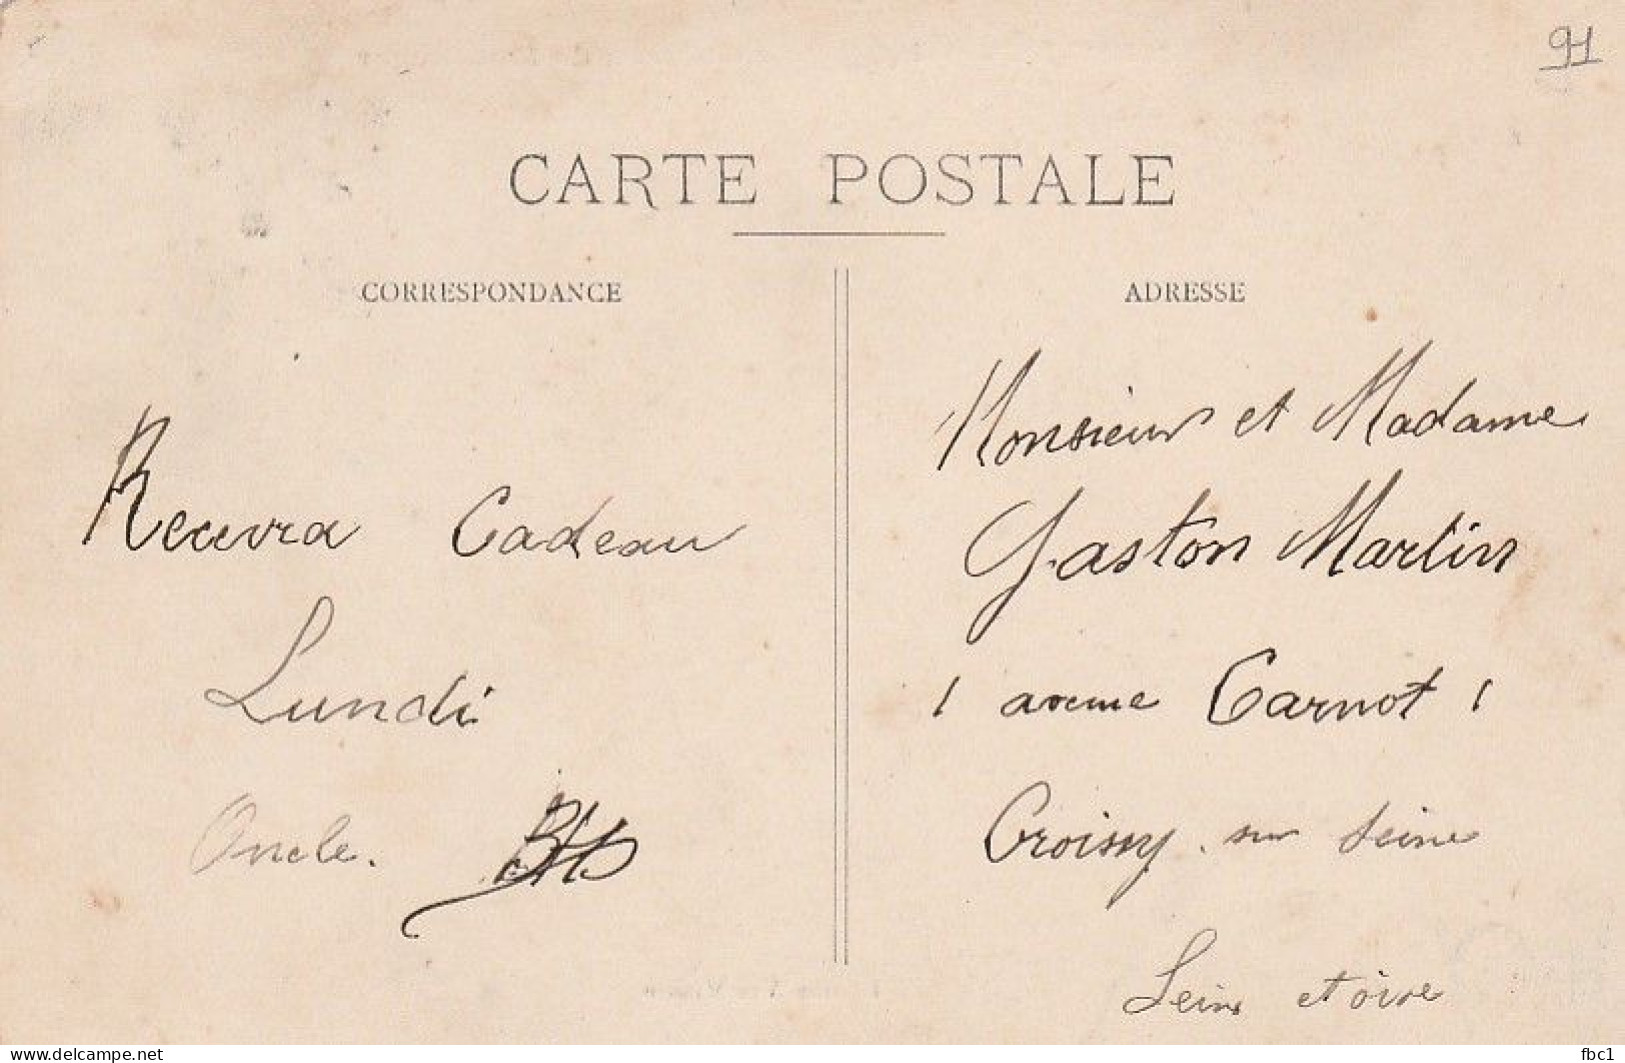 91
CARTE POSTALE
CORRESPONDANCE
Recevra Cadeau
Lundi
Oncle.
ADRESSE
Monsieur et Madame
Gaston Martin
1 avenue Carnot 1
Croissy sur Seine
Seine et oise
www.delcampe.net
fbc1